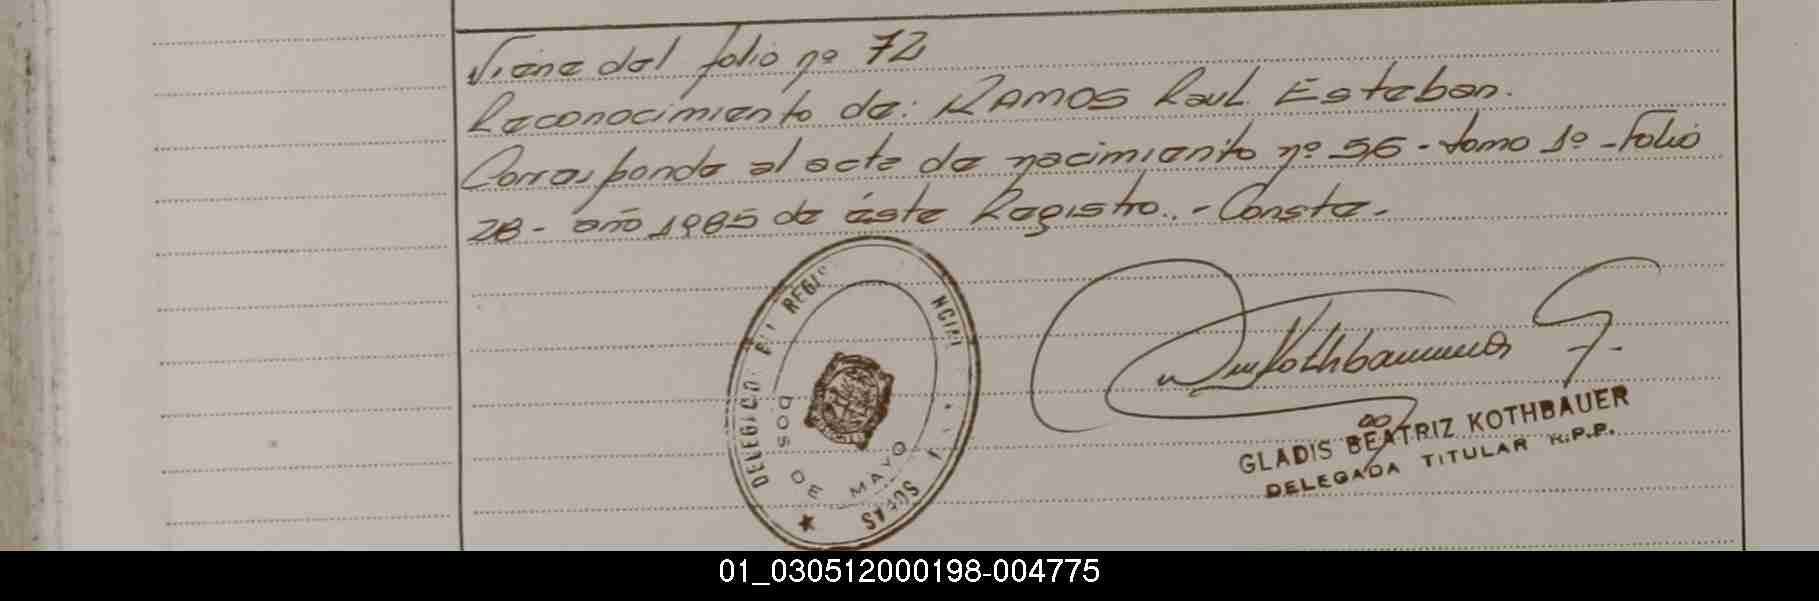 Viene del folio nº 72
Reconocimiento de: RAMOS Raul Esteban.
Corresponde al acta de nacimiento nº 56 - tomo 1º - Folio
28 - año 1985 de éste Registro. - Conste -
DELEGACIO REGIS NCIAL
DOS DE MAYO
Kothbauer G
GLADIS BEATRIZ KOTHBAUER
DELEGADA TITULAR R.P.P.
01_030512000198-004775